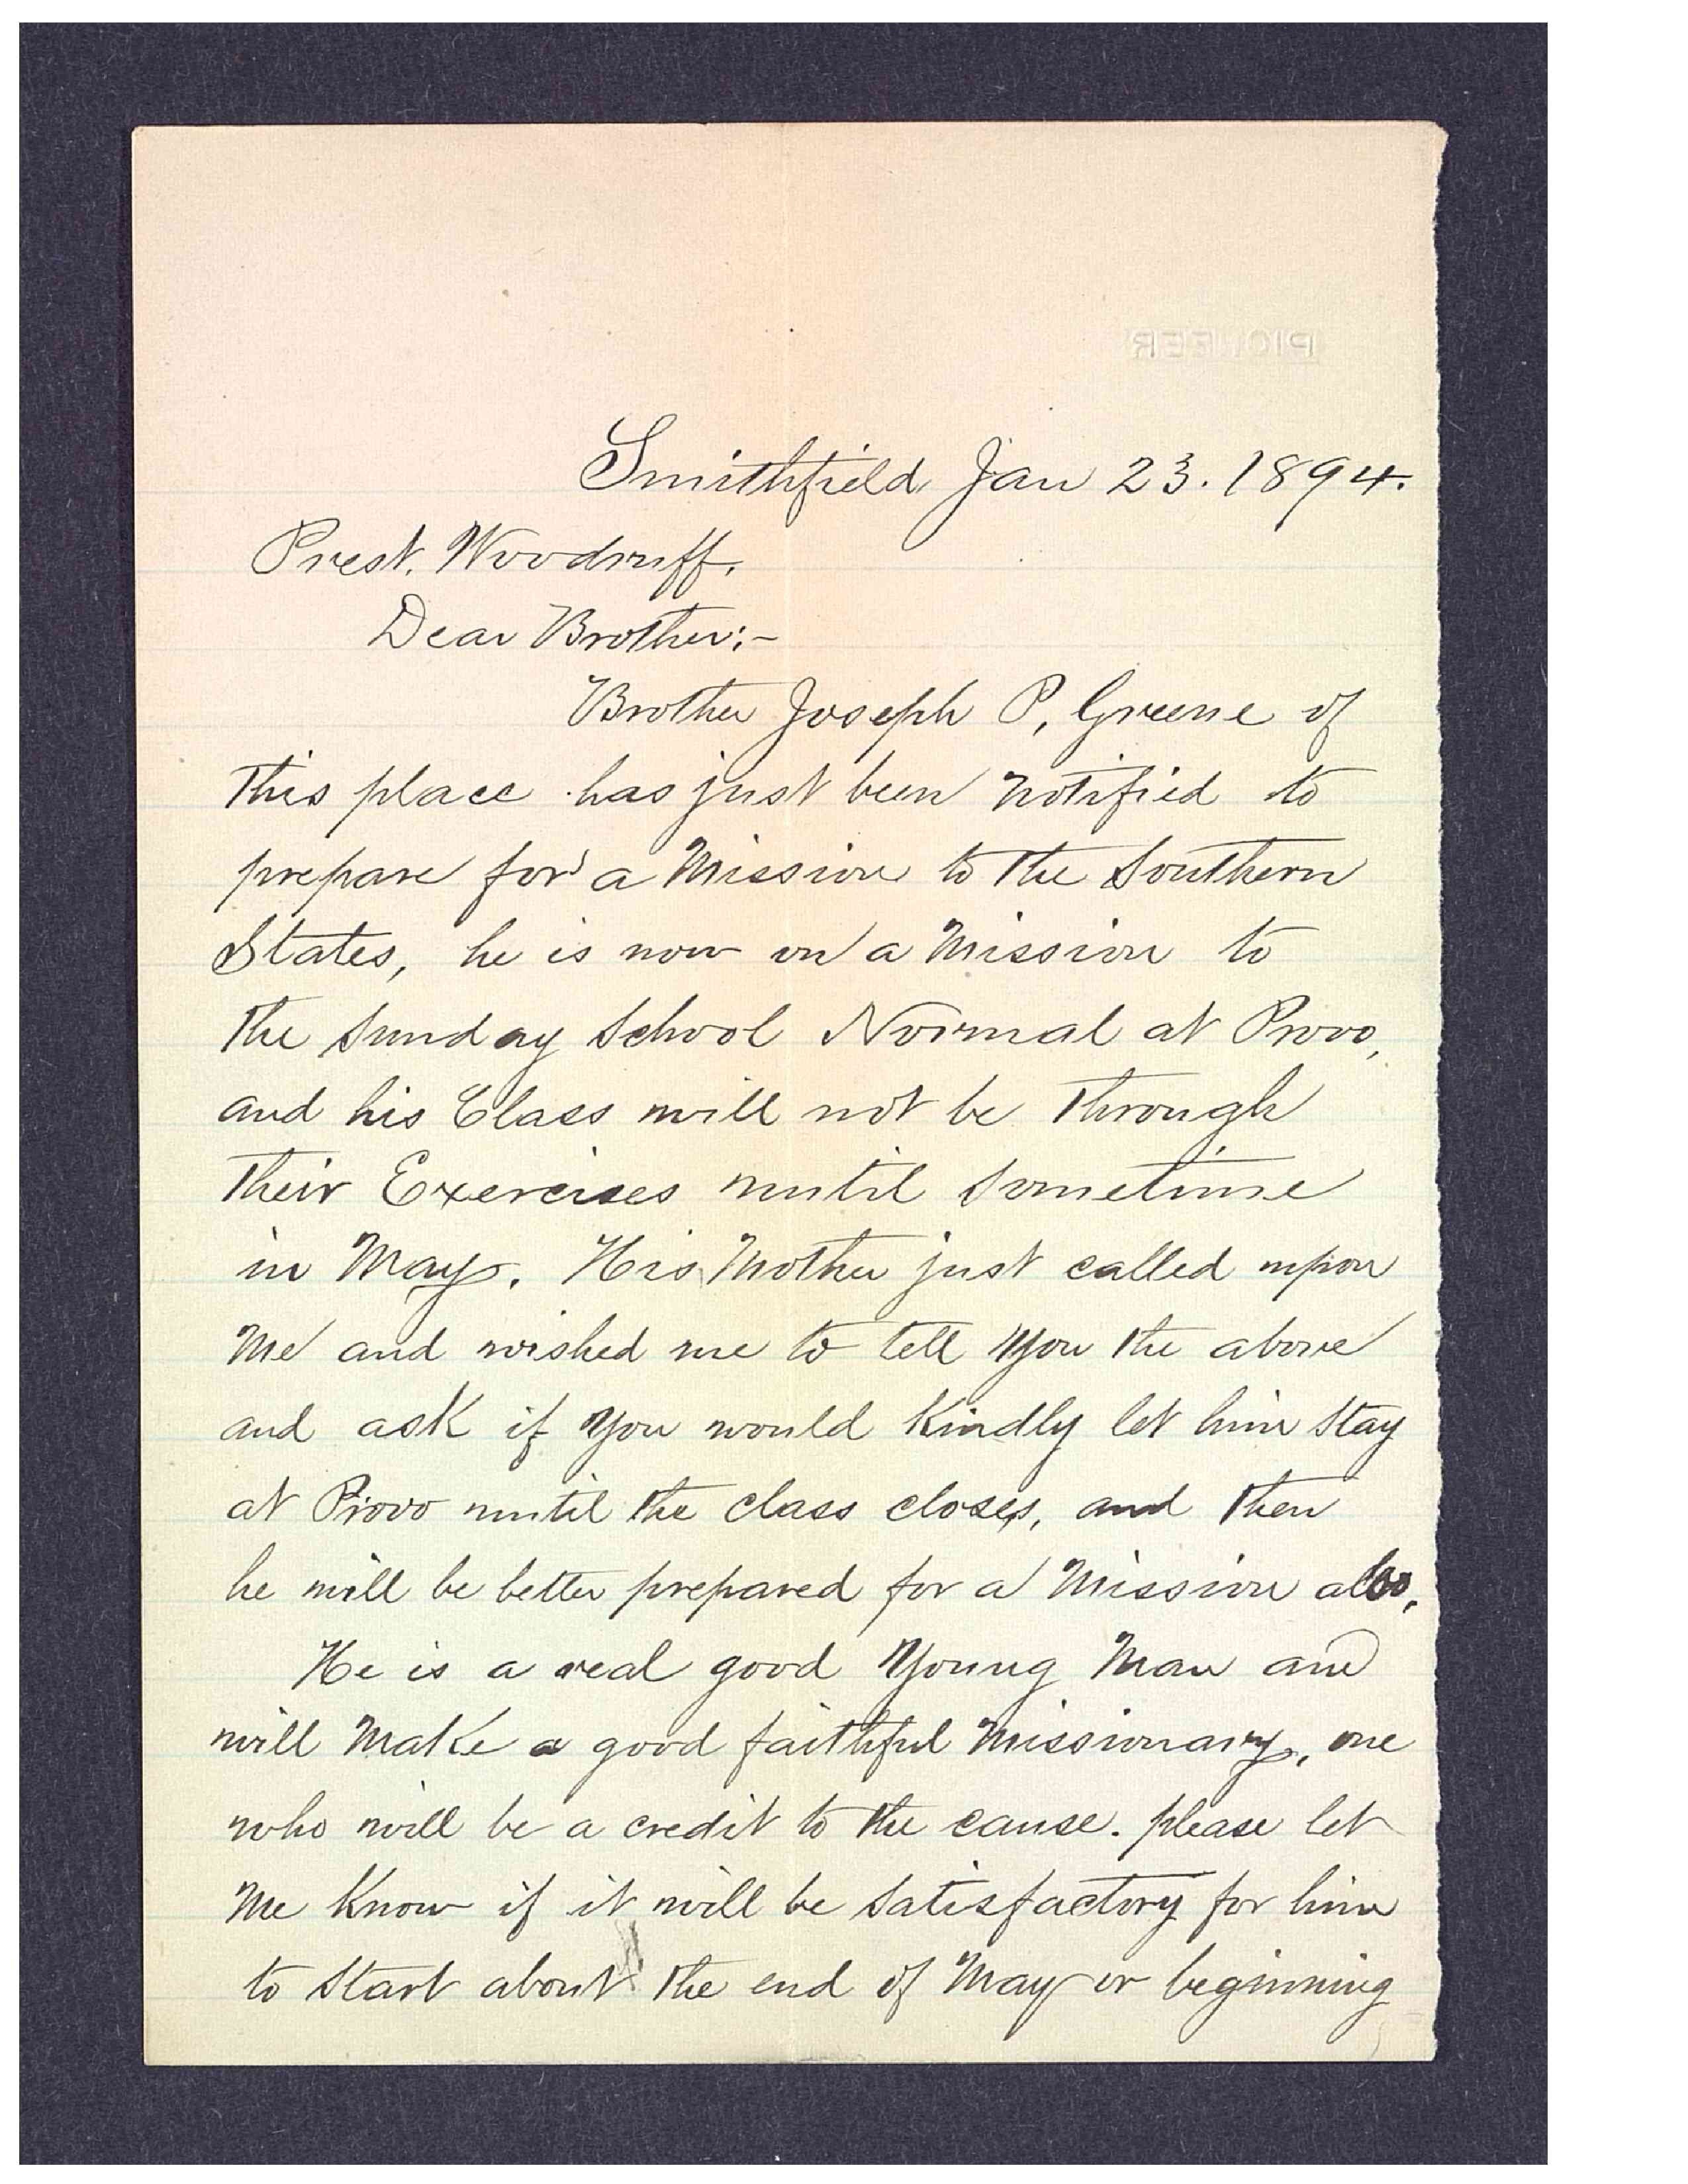 PIONEER
Smithfield Jan 23. 1894.
Prest. Woodruff.
Dear Brother:-
Brother Joseph P. Greene of
this place has just been notified to
prepare for a Mission to the Southern
States, he is now on a Mission to
the Sunday School Normal at Provo,
and his Class will not be through
their Exercises until sometime
in May. His Mother just called upon
me and wished me to tell you the above
and ask if you would kindly let him stay
at Provo until the class closes, and then
he will be better prepared for a Mission also.
He is a real good Young Man and
will make a good faithful Missionary, one
who will be a credit to the cause. please let
me know if it will be satisfactory for him
to start about the end of May or beginning